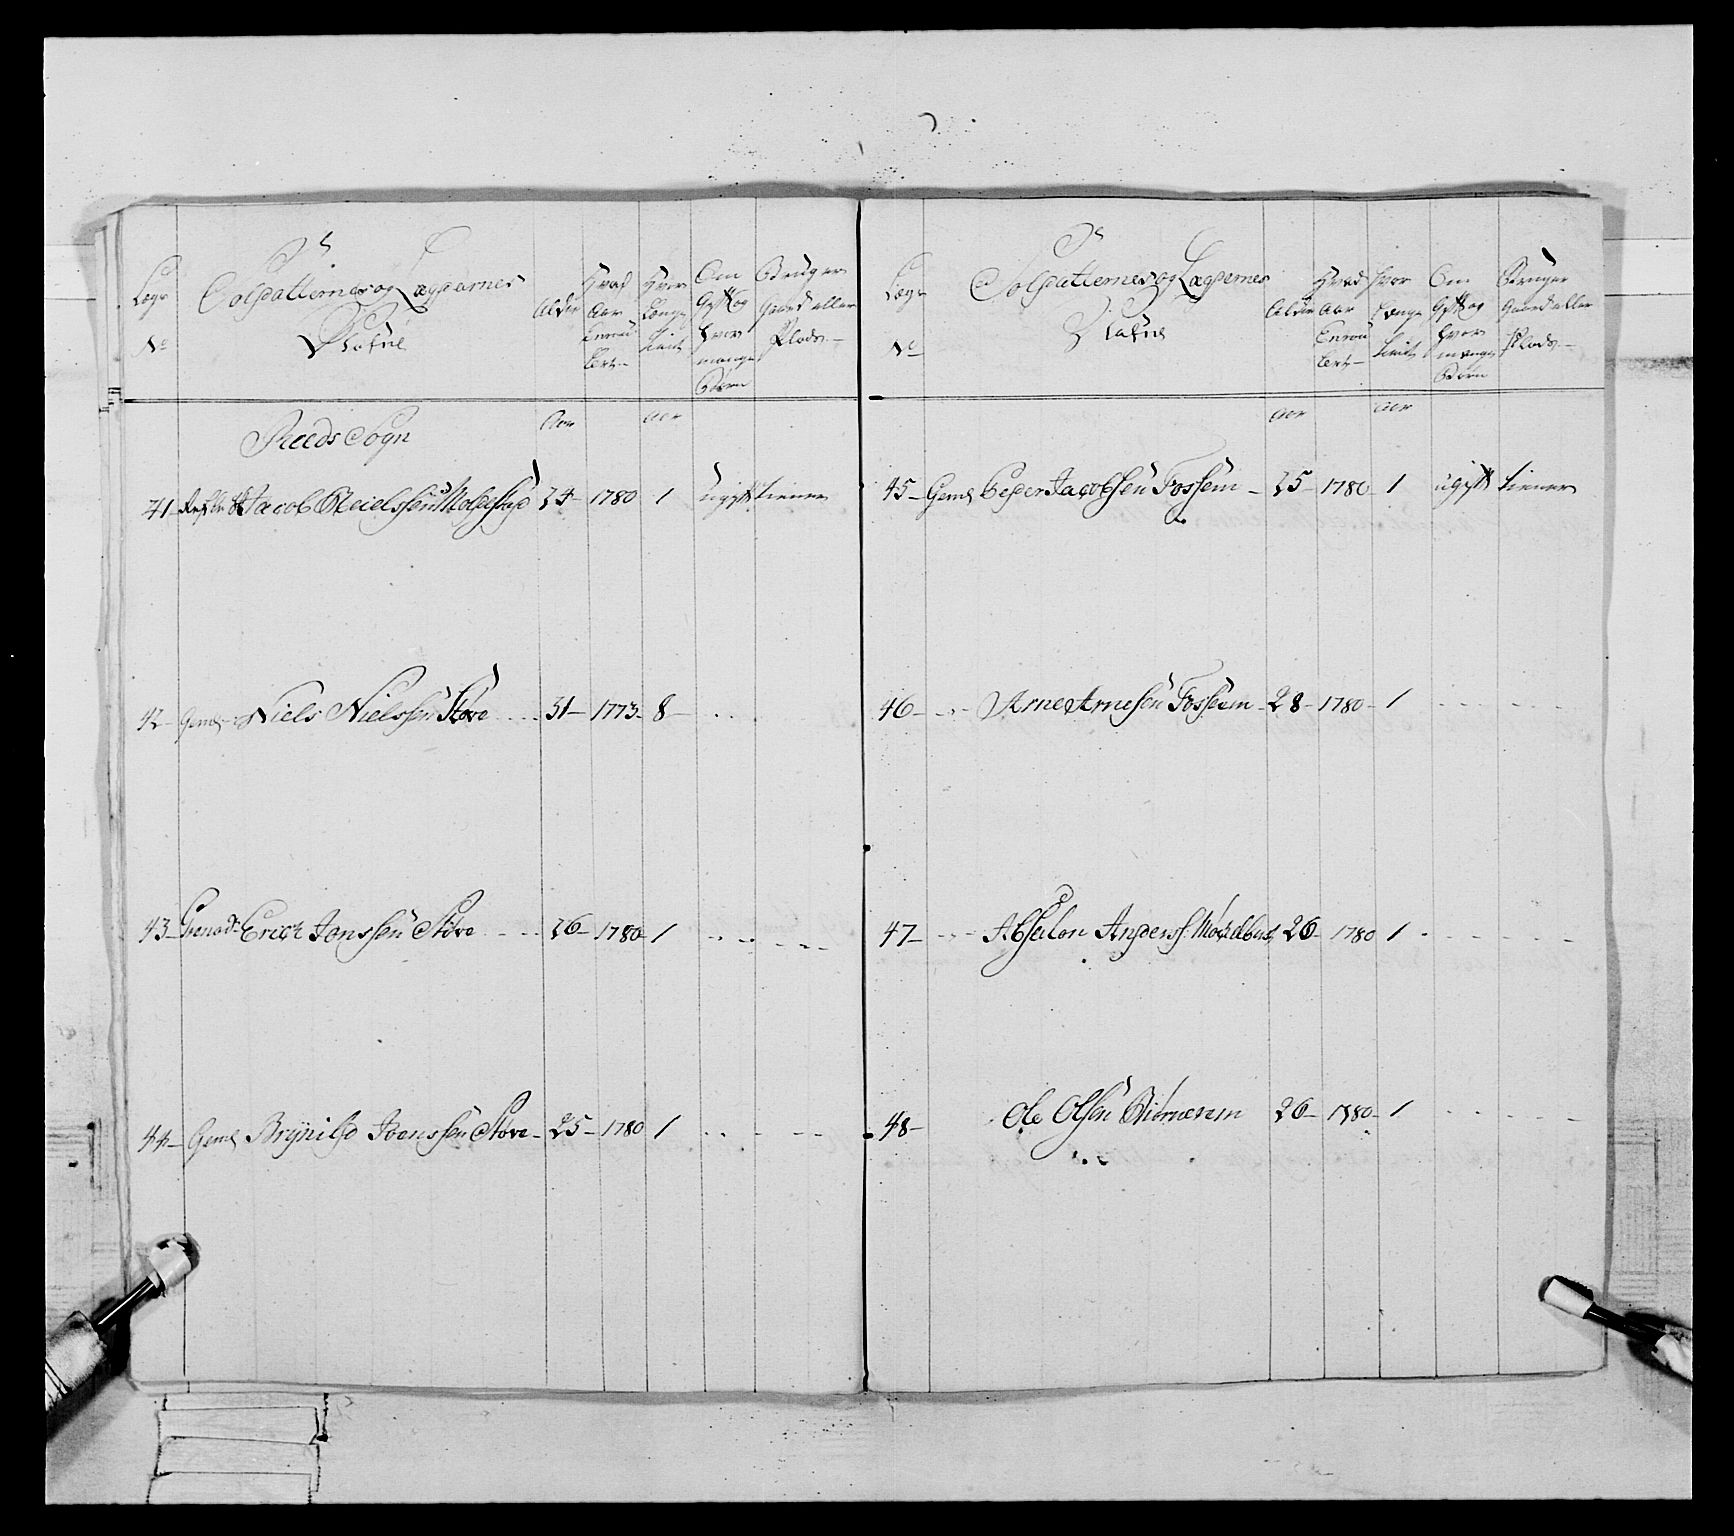 Lægs
No
Soldatternes og Lægdernes
Nafne
Alder
Hvad
Aar
Enroul
lert
Hvor
Længe
tient
Om
Gift og
hvor
mange
Børn
Bruger
Gaard eller
Plads
Aar
Aar
Reeds Sogn
41 Jacob Moldestad 24 1780 1 ugift tiener
42 Geml Niels Nielssen Støve 31 1773 8
43 Grenad Erich Jonssen Støve 26 1780 1
44 Geml Brynild Joenssen Støve 25 1780 1
Lægs
No
Soldatternes og Lægdernes
Nafne
Alder
Hvad
Aar
Enroul
lert
Hvor
Længe
tient
Om
Gift og
hvor
mange
Børn
Bruger
Gaard eller
Plads
Aar
Aar
45 Geml Peder Jacobsen Fossem 25 1780 1 ugift tiener
46 Arne Arnesen Fossem 28 1780 1
47 Absalon Anders. 26 1780 1
48 Ole Olsen 26 1780 1